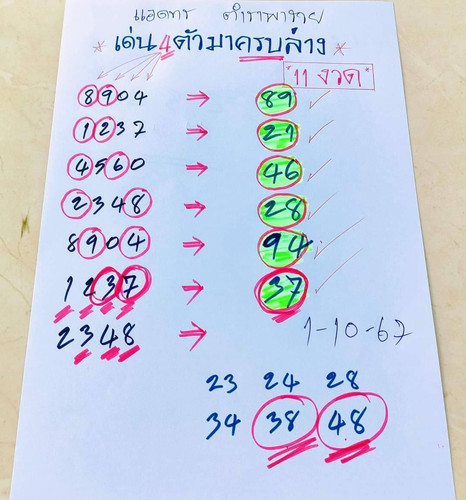 แอดทร ตำราพารวย
*เด่น 4 ตัวมาครบล่าง*
"11 งวด"
8904 → 89 ✓
1237 → 21 ✓
4560 → 46 ✓
2348 → 28 ✓
8904 → 94 ✓
1237 → 37 ✓
2348 → 1-10-67
23 24 28
34 38 48